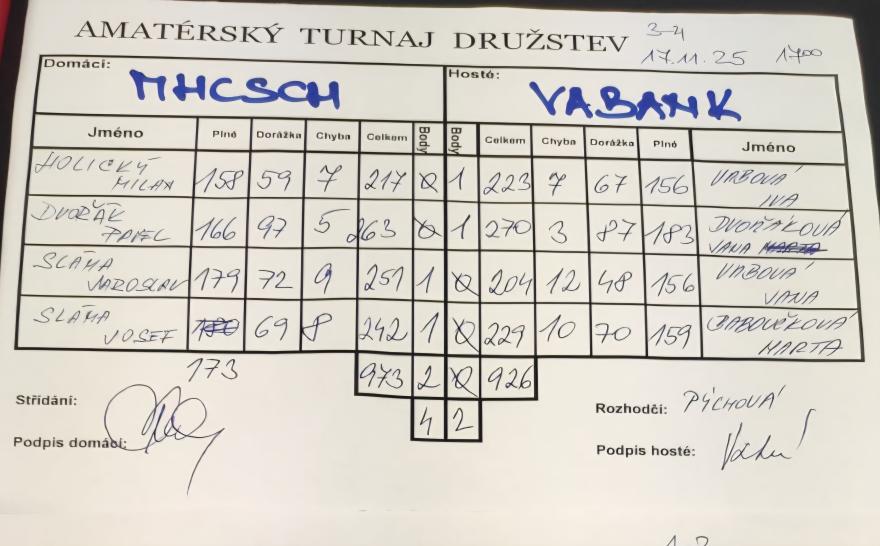 AMATÉRSKÝ TURNAJ DRUŽSTEV 3-4
17.11.25 17⁰⁰
Domácí: MHCSCH Hosté: VABANK
Jméno Plné Dorážka Chyba Celkem Body Body Celkem Chyba Dorážka Plné Jméno
HOLICKÝ MILAN 158 59 7 217 0 1 223 7 67 156 VRBOVÁ IVA
DVOŘÁK PAVEL 166 97 5 263 0 1 270 3 87 183 DVOŘÁKOVÁ JANA
SLÁMA JAROSLAV 179 72 9 251 1 0 204 12 48 156 VRBOVÁ JANA
SLÁMA JOSEF 69 8 242 1 0 229 10 70 159 BABOUČKOVÁ MARTA
173 973 2 0 926
Střídání: 4 2 Rozhodčí: PÝCHOVÁ
Podpis domácí: Podpis hosté: